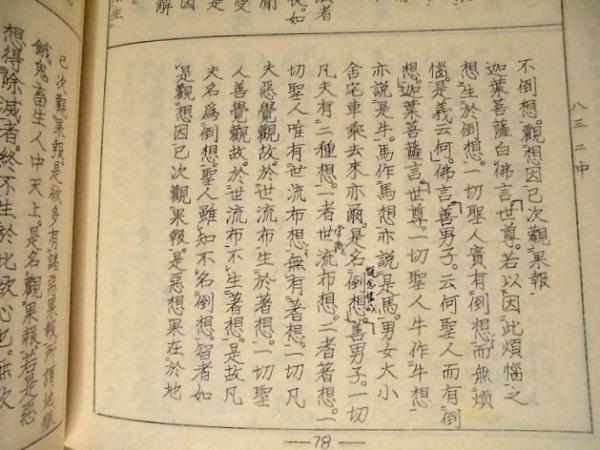 八三 二中
不倒想。觀想因已次觀果報
迦葉菩薩白佛言世尊。若以因此煩惱之
想生於倒想。一切聖人實有倒想而無煩
惱。是義云何。佛言善男子。云何聖人而有倒
想。迦葉菩薩言世尊。一切聖人牛作牛想
亦說是牛。馬作馬想亦說是馬。男女大小
舍宅車乘去來亦爾。是名倒想。善男子。一切
凡夫有二種想。一者世流布想。二者著想。一
切聖人唯有世流布想。無有著想。一切凡
夫惡覺觀故。於世流布生於著想。一切聖
人善覺觀故。於世流布不生著想。是故凡
夫名為倒想。聖人雖知不名倒想。智者如
是觀想因已次觀果報。是惡想果在於地
78
已次觀果報是欲多有諸惡果報所謂地獄
餓鬼畜生人中天上。是名觀果報若是惡
想得除滅者。終不生於此欲心也。無次